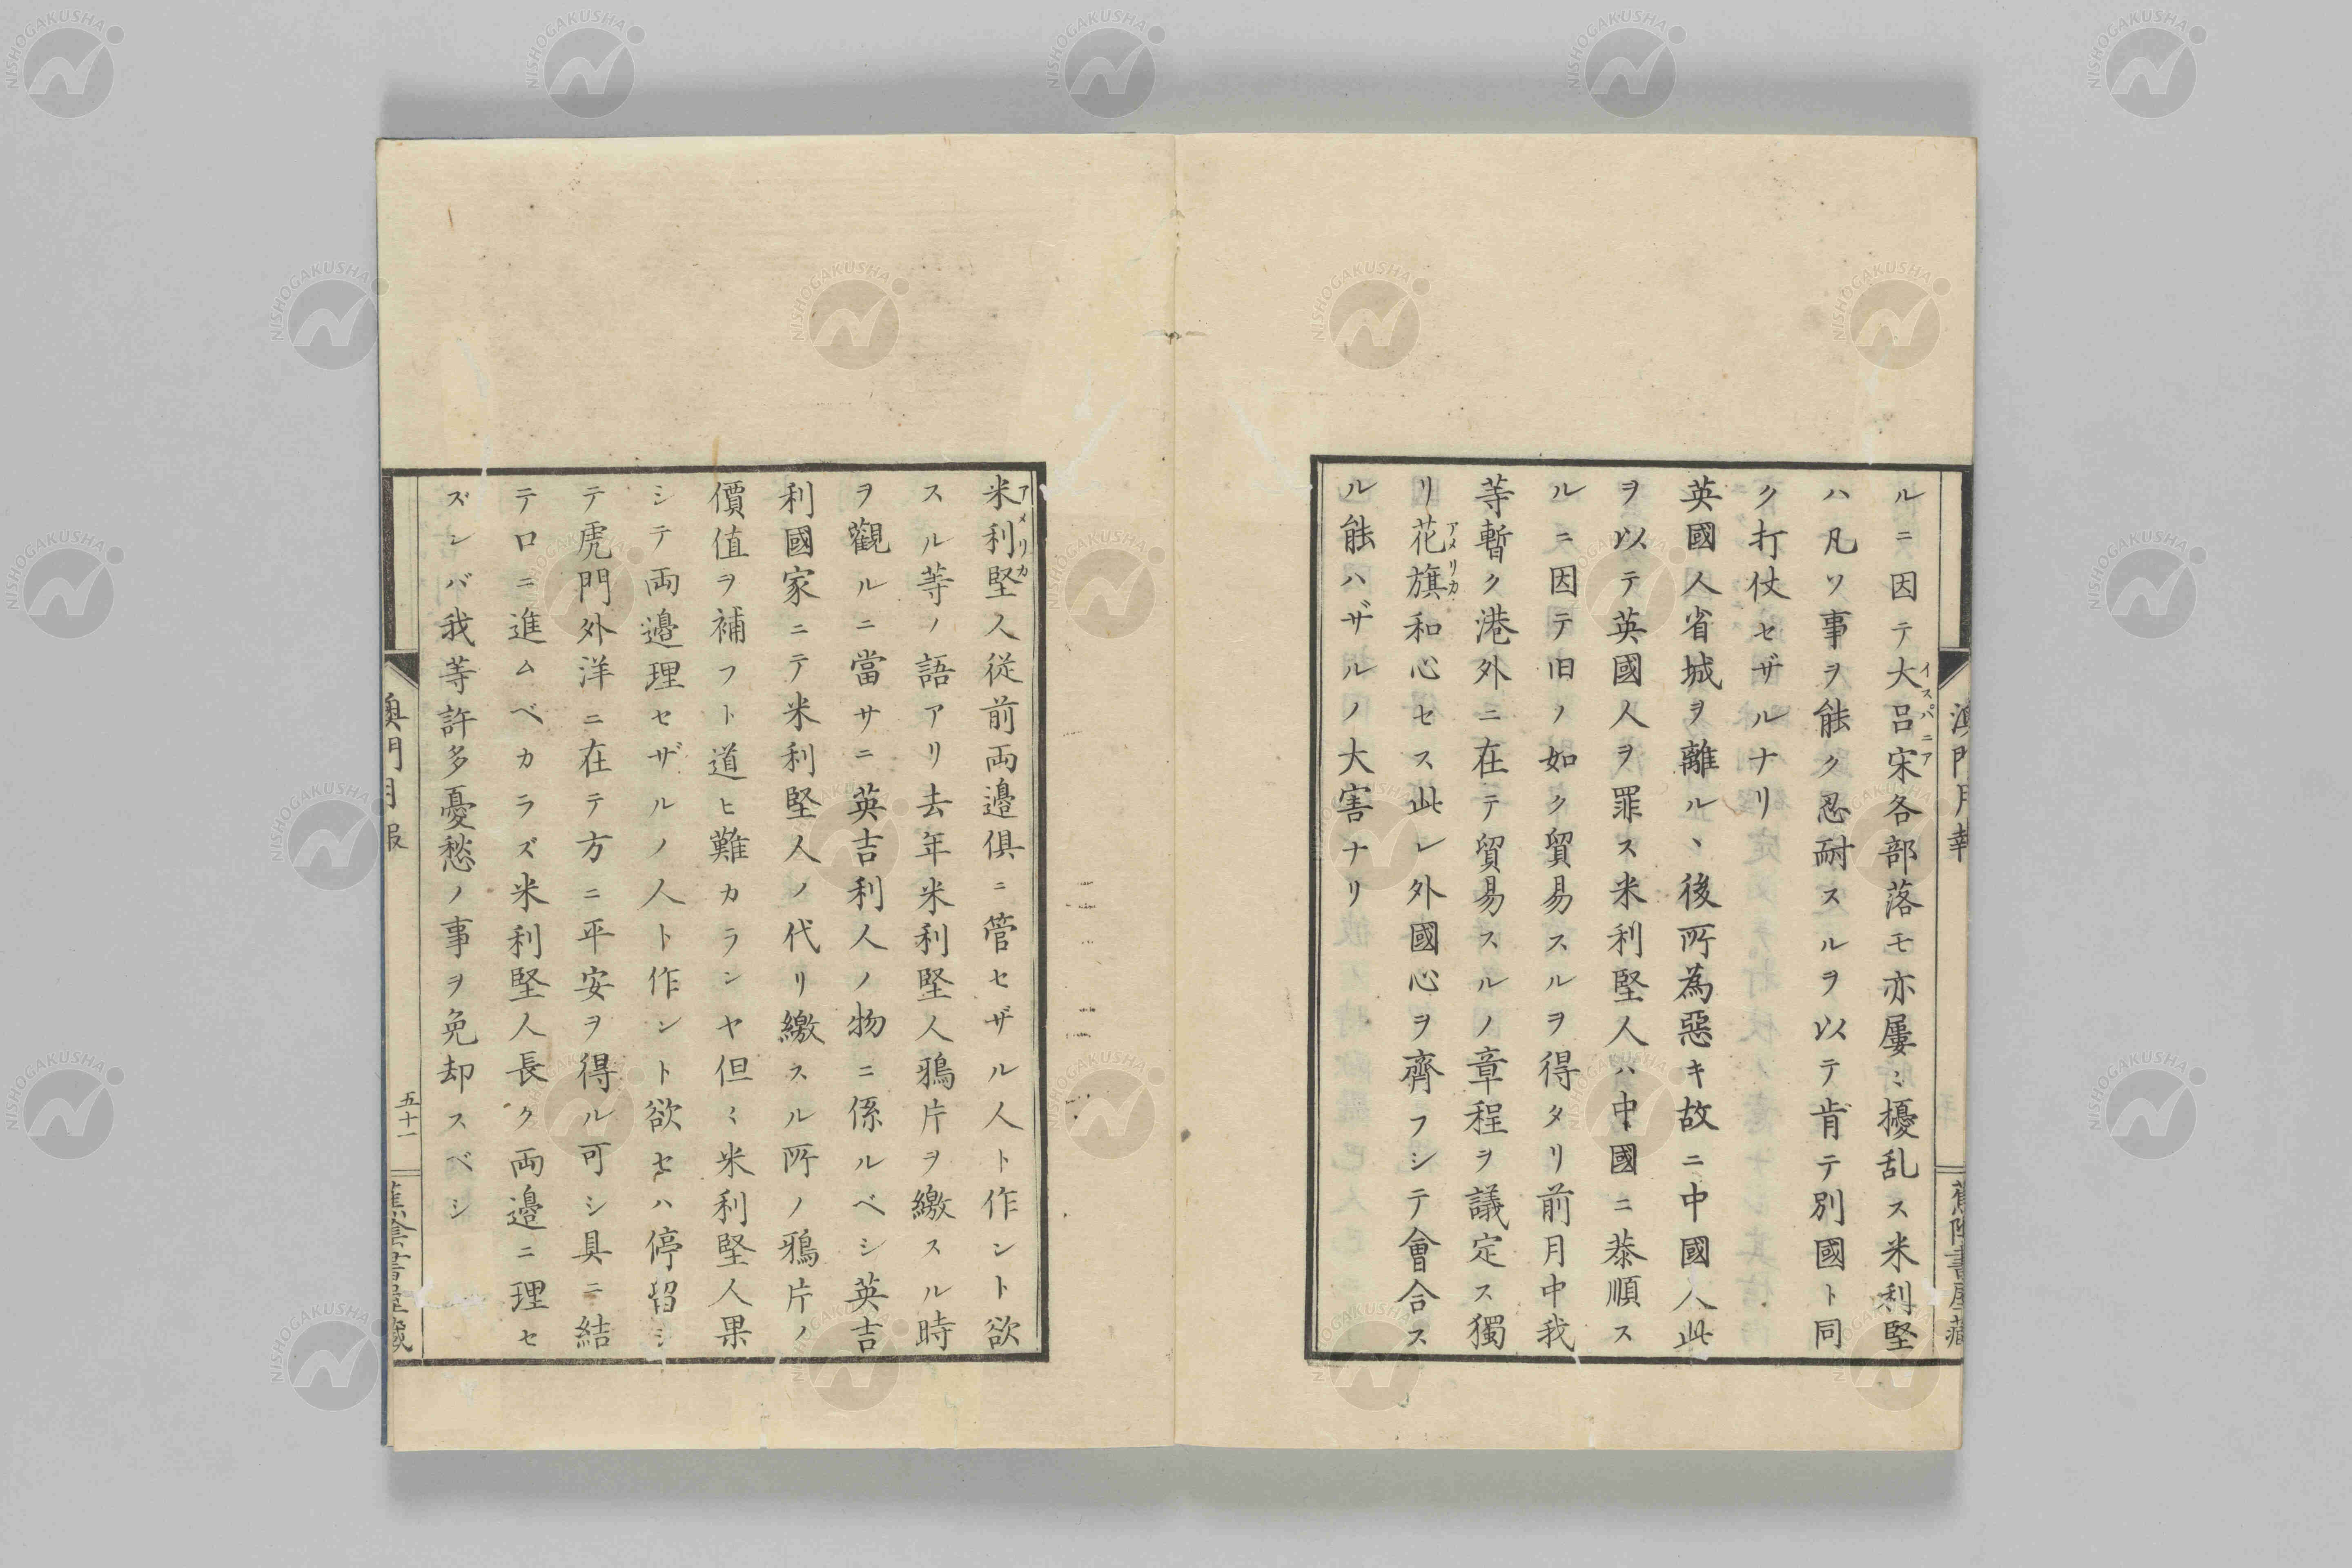 澳門月報
蕉陰書屋藏
ルニ因テ大呂宋各部落モ亦屢〻擾乱ス米利堅
イスパニア
ハ凡ソ事ヲ能ク忍耐スルヲ以テ肯テ別國ト同
ク打仗セザルナリ
英國人省城ヲ離ルヽ後所為惡キ故ニ中國人此
ヲ以テ英國人ヲ罪ス米利堅人ハ中國ニ恭順ス
ルニ因テ旧ノ如ク貿易スルヲ得タリ前月中我
等暫ク港外ニ在テ貿易スルノ章程ヲ議定ス獨
リ花旗和心セス此レ外國心ヲ齊フシテ會合ス
アメリカ
ル能ハザルノ大害ナリ
米利堅人従前両邉俱ニ管セザル人ト作ント欲
アメリカ
スル等ノ語アリ去年米利堅人鴉片ヲ繳スル時
ヲ觀ルニ當サニ英吉利人ノ物ニ係ルベシ英吉
利國家ニテ米利堅人ノ代リ繳スル所ノ鴉片ノ
價值ヲ補フト道ヒ難カランヤ但〻米利堅人果
シテ両邉理セザルノ人ト作ント欲セハ停留シ
テ虎門外洋ニ在テ方ニ平安ヲ得ル可シ具ニ結
テ口ニ進ムベカラズ米利堅人長ク両邉ニ理セ
ズンバ我等許多憂愁ノ事ヲ免却スベシ
澳門月報
五十一
蕉陰書屋藏
NISHOGAKUSHA